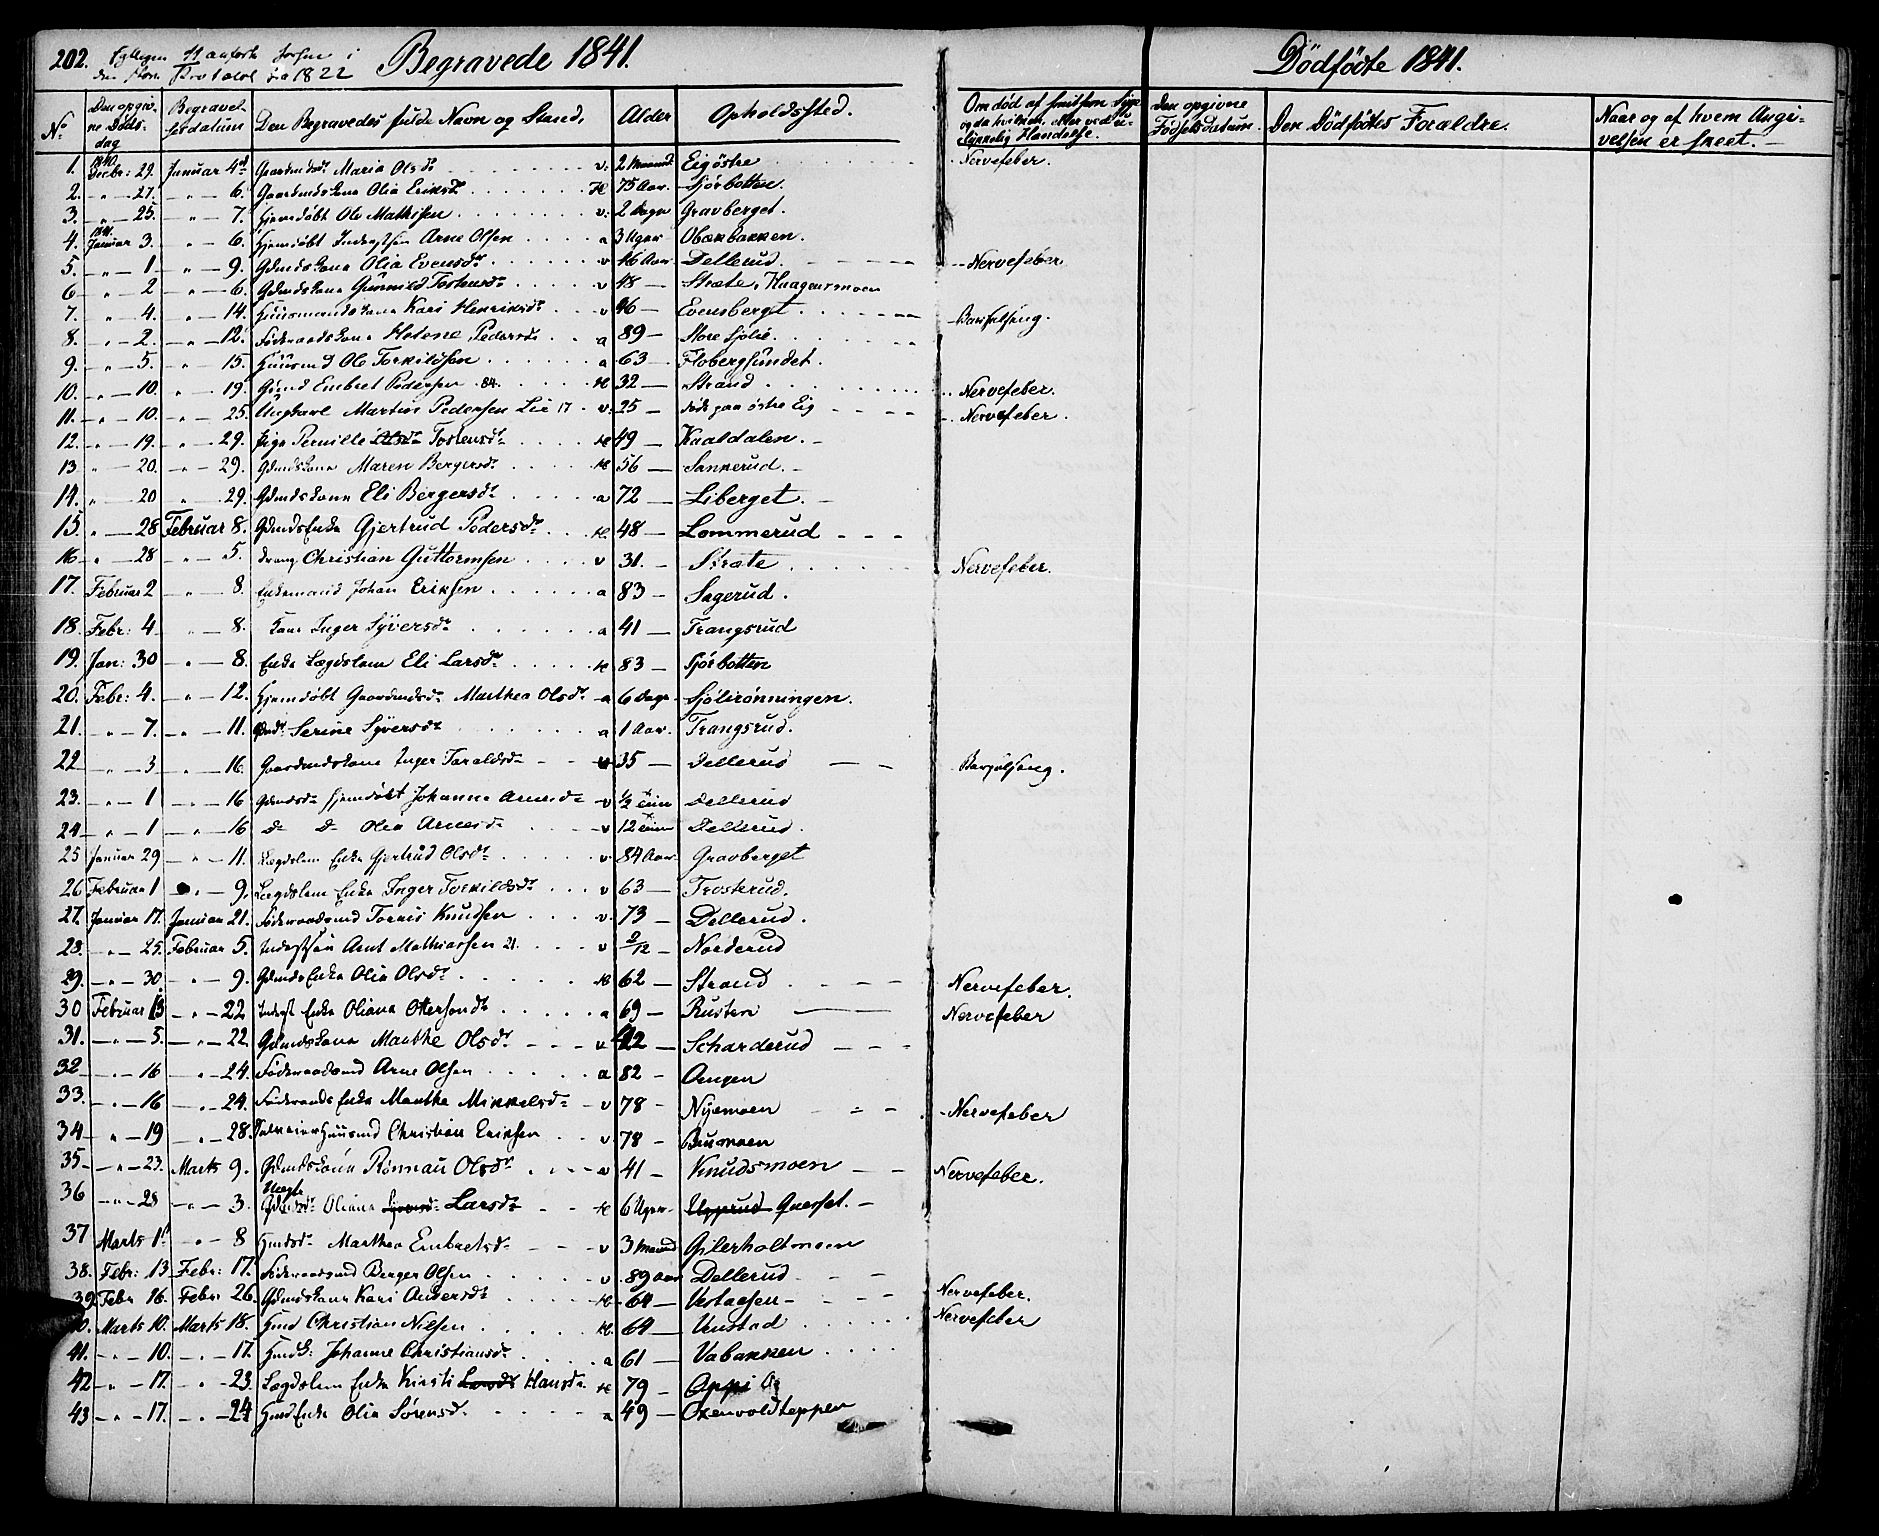 202. Begravede 1841.
den Protokol fra 1822
Dödfödte 1841.
No Den opgivne Döds-dag Begravelsesdatum Den Begravedes fulde Navn og Stand. Alder Opholdssted. Om död af smitsom Syge og da hvilken, eller ved ulykkelig Hændelse. Den opgivne Födselsdatum. Den Dödfödtes Forældre. Naar og af hvem Angivelsen er skeet.
1. 1840 Decbr: 29. Januar 4de Gaardmdsdr Maria Olsdr v. 2 Maaned Eig östre Nervefeber.
2. " 27. " 6. Gaardmdskone Olia Eriksdr H 75 Aar. Sjörbotten.
3. " 25. " 7. Hjemdöbt Ole Mathisen v. 2 Dage Gravberget.
4. 1841. Januar 3. " 6. Hjemdöbt Inderstsön Arne Olsen a 3 Uger Obækbakken.
5. " 1 " 9. Gdmdskone Olia Evensdr v 46 Aar Dellerud. Nervefeber
6 " 2 " 6. Gdmdskone Gunnild Tostensdr v 48 Stræte, Haagensmoen
7. " 4. " 14. Huusmandskone Kari Henriksdr v 46 Evensberget. Barselseng.
8. " 2. " 12. Föderaadskone Helene Pedersdr a 89 Store Sjölie.
9. " 5. " 15. Huusmd Ole Torkildsen a 63 Flobergsundet.
10. " 10. " 19. Gmd Embret Pedersen 84. H 32 Strand. Nervefeber.
11. " 10. " 25. Ungkarl Martin Pedersen Lie 17 v. 25 död paa östre Eig Nervefeber.
12. " 19. " 29. Pige Pernille Olsdr Tostensdr H 49 Kaaldalen.
13 " 20. " 29. Gdmdskone Maren Bergersdr H 56 Sannerud.
14. " 20 " 29. Gdmdskone Eli Bergersdr a 72 Liberget.
15. " 28 Februar 8. Gdmds Enke Gjertrud Pedersdr H. 48 Lommerud
16 " 28 " 5. Dreng Christian Guttormsen v 31. Stræte Nervefeber.
17. Februar 2 " 8. Enkemand Johan Eriksen a 83 Sagerud.
18. Febr: 4 " 8. Kone Inger Syversdr a 41 Trangsrud
19. Jan: 30 " 8. Enke Lægdslem Eli Larsdr H 83 Sjörbotten
20. Febr: 4. " 12. Hjemdöbt Gaardmdsdr Marthea Olsdr a 6 Dage Sjölirönningen.
21. " 7. " 11. Gmdsdr Serine Syversdr a 1 Aar. Trangsrud.
22 " 3 " 16. Gaardmdskone Inger Taraldsdr v 35 Dellerud Barselseng.
23. " 1 " 16 Gdmdsdr hjemdöbt Johanne Arnesdr v ½ Time Dellerud
24 " 1 " 16 Dr Dr Olia Arnesdr v 12 Timer Dellerud.
25 Januar 29 " 11. Lægdslem Enke Gjertrud Olsdr v 84 Aar Gravberget
26 Februar 1 " 9. Lægdslem Enke Inger Torkildsdr v 63 Trosterud.
27. Januar 17. Januar 21. Föderaadsmd Tornis Knudsen v. 73 Dellerud.
28. " 25. Februar 5. Inderstsön Amt Mathiassen 21. v 9/12 Norderud
29. " 30. " 9. Gdmds Enke Olia Olsdr H 62 Strand Nervefeber.
30 Februar 13 " 22 Inderst Enke Oliana Ottersensdr a 69 Rusten Nervefeber
31. " 5. " 22. Gdmdskone Marthe Olsdr v 42 Scharderud
32 " 16 " 24. Föderaadsmd Arne Olsen a 82 Aengen
33. " 16 " 24. Föderaads Enke Marthe Mikkelsdr v 78 Nyemoen Nervefeber
34 " 19 " 28. Huusmd Christian Eriksen v. 78 Brumoen
35 " 23. Marts 9. Gdmdskone Rönnau Olsdr v 41 Knudsmoen Nervefeber.
36 " 28 " 3. Uægte Gdmdsdr Oliana Syversdr Larsdr H 6 Uger Upprud Quesset.
37 Marts 1st " 8 Hmdsdr Marthea Embretsdr v 3 Maaned Gilerholtmoen
38. Febr: 13 Febr: 17. Föderaadsmd Berger Olsen v. 89 Aar Dellerud
39. Febr 16. Febr: 26. Gdmdskone Kari Andersdr H 64 Vestaasen Nervefeber.
40. Marts 10. Marts 18. Hmd Christian Nilsen H. 64 Venstad Nervefeber
41. " 10. " 17. Hmdk: Johanne Christiansdr a 61 Vabakken
42 " 17. " 23. Lægdslem Enke Kirsti Larsdr Hansdr H 79 Oppi Eg
43 " 17. " 24 Hmd Enke Olia Sörensdr a 49 Oxenvoldteppen